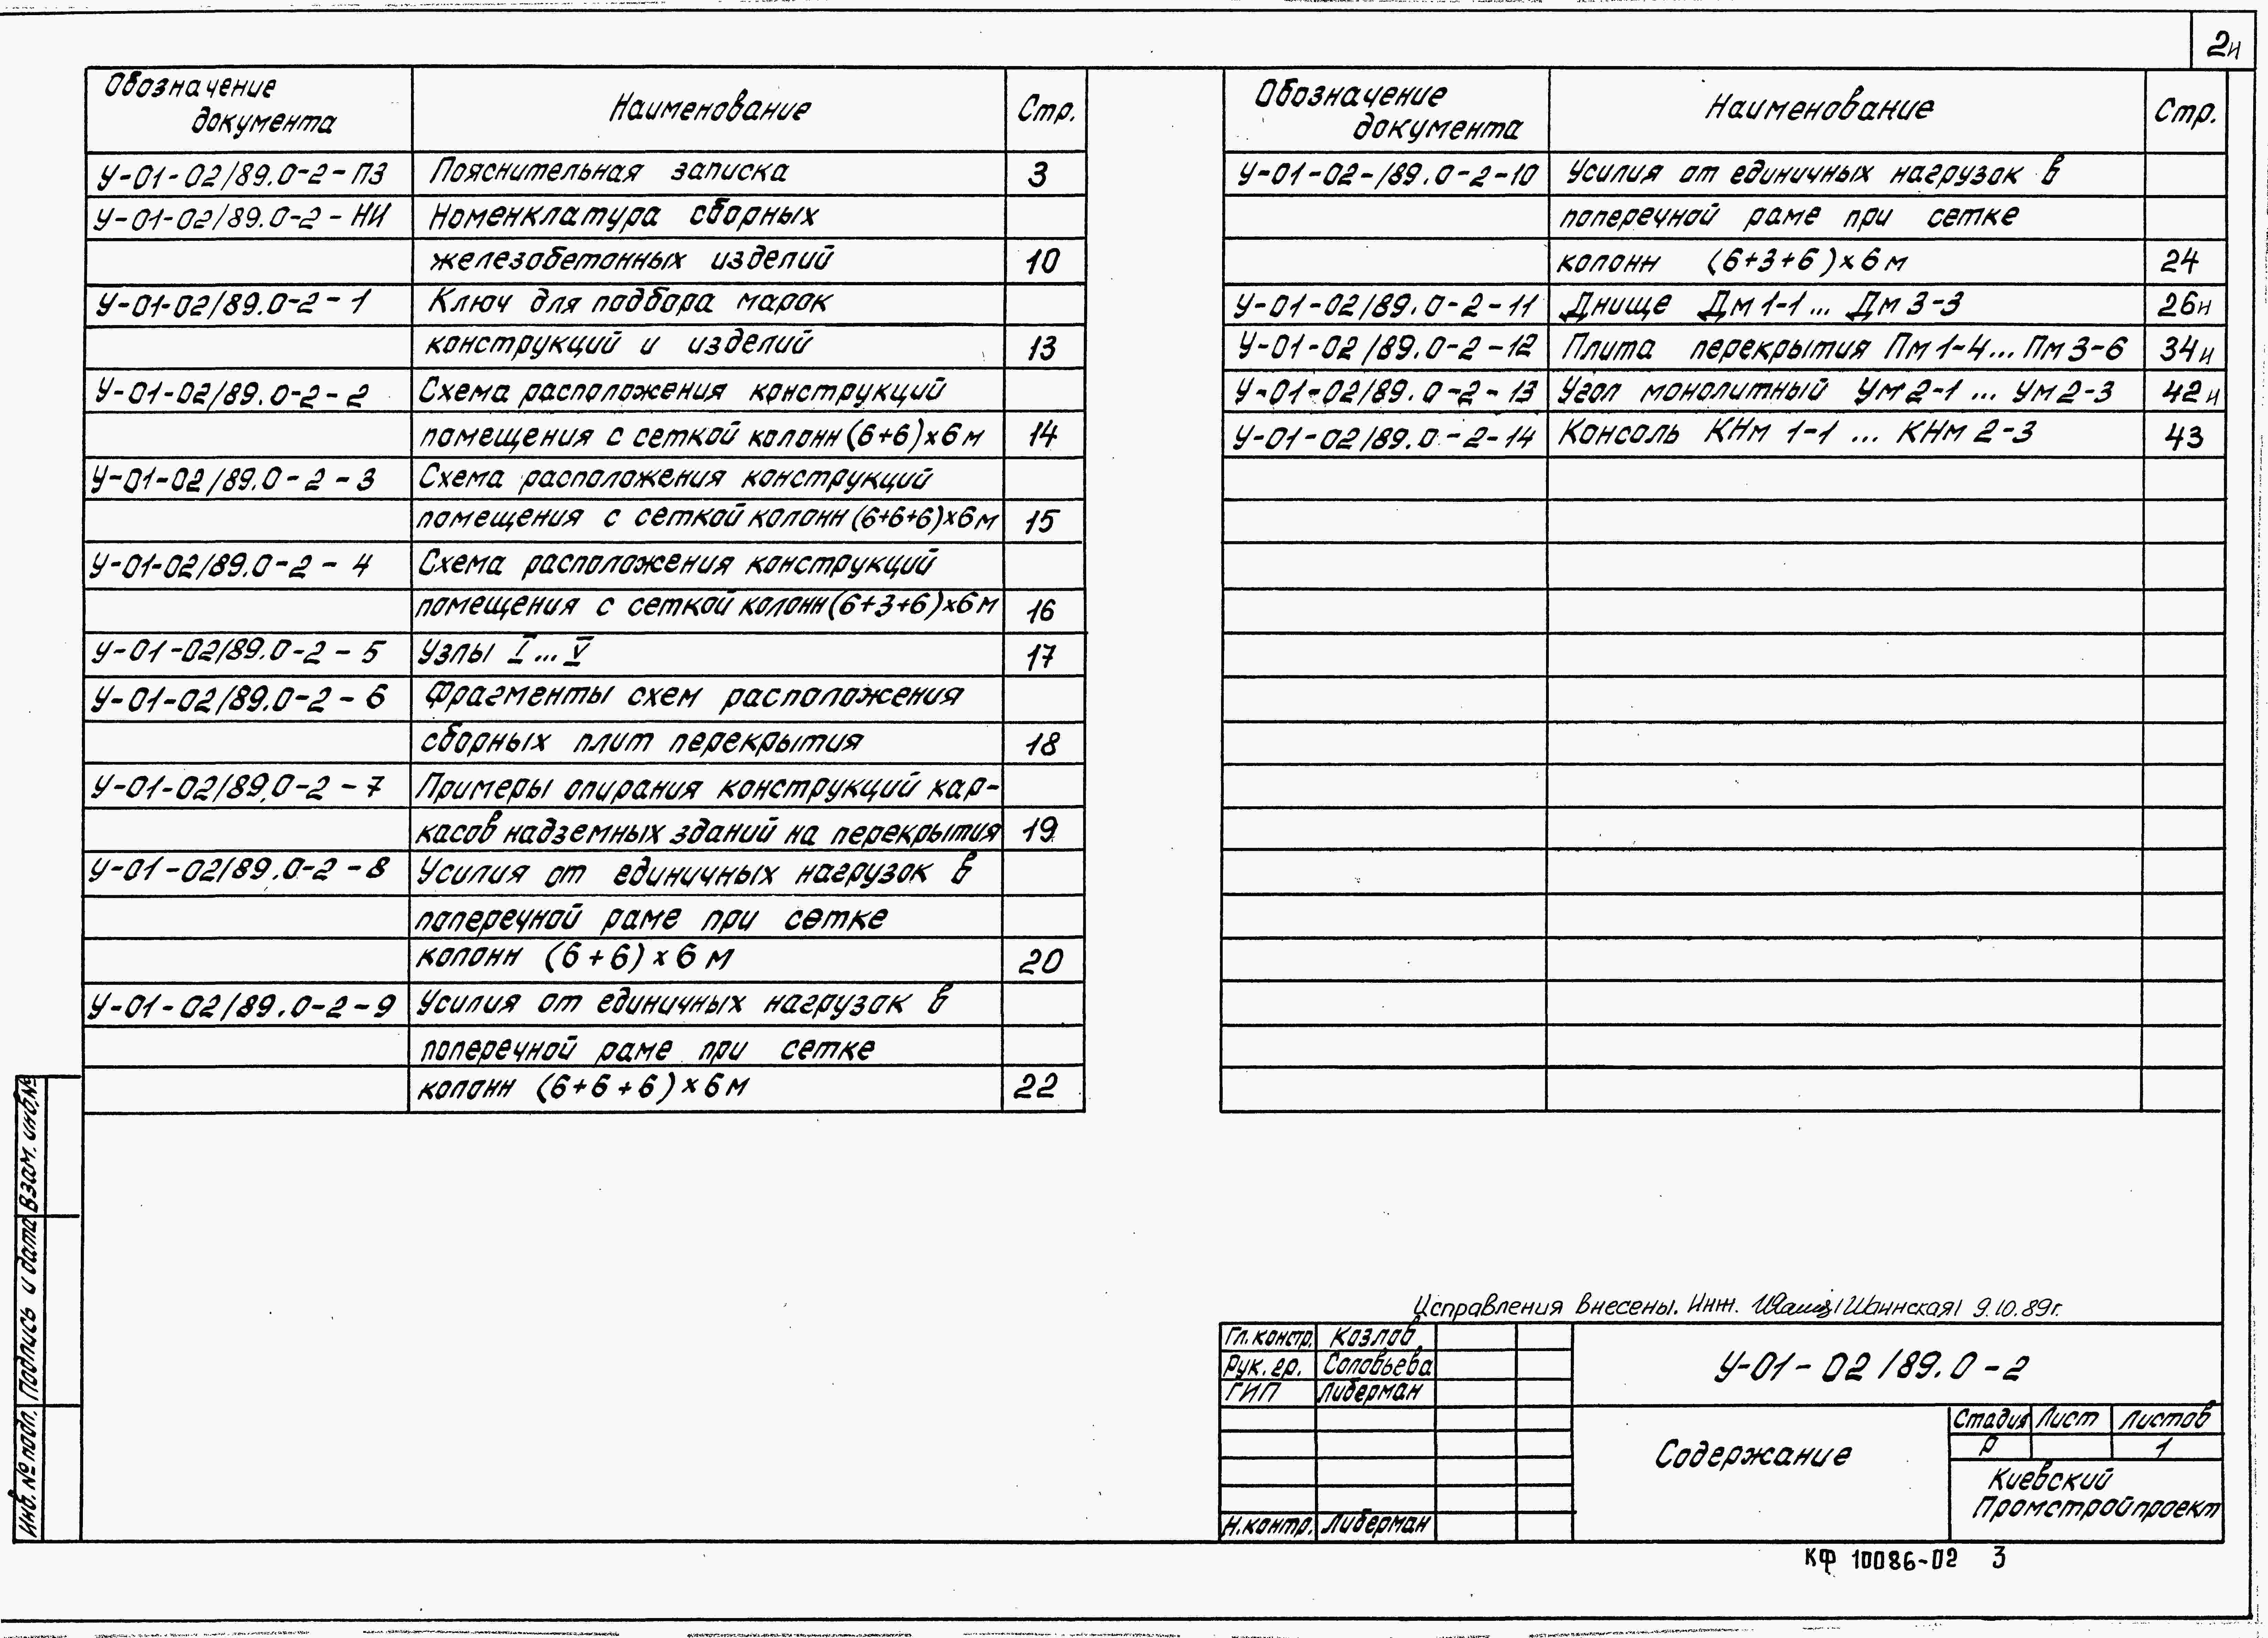 2и
Обозначение документа Наименование Стр.
У-01-02/89.0-2-ПЗ Пояснительная записка 3
У-01-02/89.0-2-НИ Номенклатура сборных
железобетонных изделий 10
У-01-02/89.0-2-1 Ключ для подбора марок
конструкций и изделий 13
У-01-02/89.0-2-2 Схема расположения конструкций
помещения с сеткой колонн (6+6)х6м 14
У-01-02/89.0-2-3 Схема расположения конструкций
помещения с сеткой колонн (6+6+6)х6м 15
У-01-02/89.0-2-4 Схема расположения конструкций
помещения с сеткой колонн (6+3+6)х6м 16
У-01-02/89.0-2-5 Узлы I...V 17
У-01-02/89.0-2-6 Фрагменты схем расположения
сборных плит перекрытия 18
У-01-02/89.0-2-7 Примеры опирания конструкций кар-
касов надземных зданий на перекрытия 19
У-01-02/89.0-2-8 Усилия от единичных нагрузок в
поперечной раме при сетке
колонн (6+6)х6м 20
У-01-02/89.0-2-9 Усилия от единичных нагрузок в
поперечной раме при сетке
колонн (6+6+6)х6м 22
Обозначение документа Наименование Стр.
У-01-02-/89.0-2-10 Усилия от единичных нагрузок в
поперечной раме при сетке
колонн (6+3+6)х6м 24
У-01-02/89.0-2-11 Днище Дм1-1... Дм3-3 26и
У-01-02/89.0-2-12 Плита перекрытия Пм1-4...Пм3-6 34и
У-01-02/89.0-2-13 Угол монолитный Ум2-1 ... Ум2-3 42и
У-01-02/89.0-2-14 Консоль КНм 1-1 ... КНм 2-3 43
Исправления внесены. Инж. /Шаинская/ 9.10.89г.
Гл. констр. Козлов
Рук. гр. Соловьева
ГИП Либерман
Н.контр. Либерман
У-01-02/89.0-2
Содержание
Стадия Лист Листов
Р 1
Киевский
Промстройпроект
Инв. № подл. Подпись и дата Взам. инв.№
КФ 10086-02 3